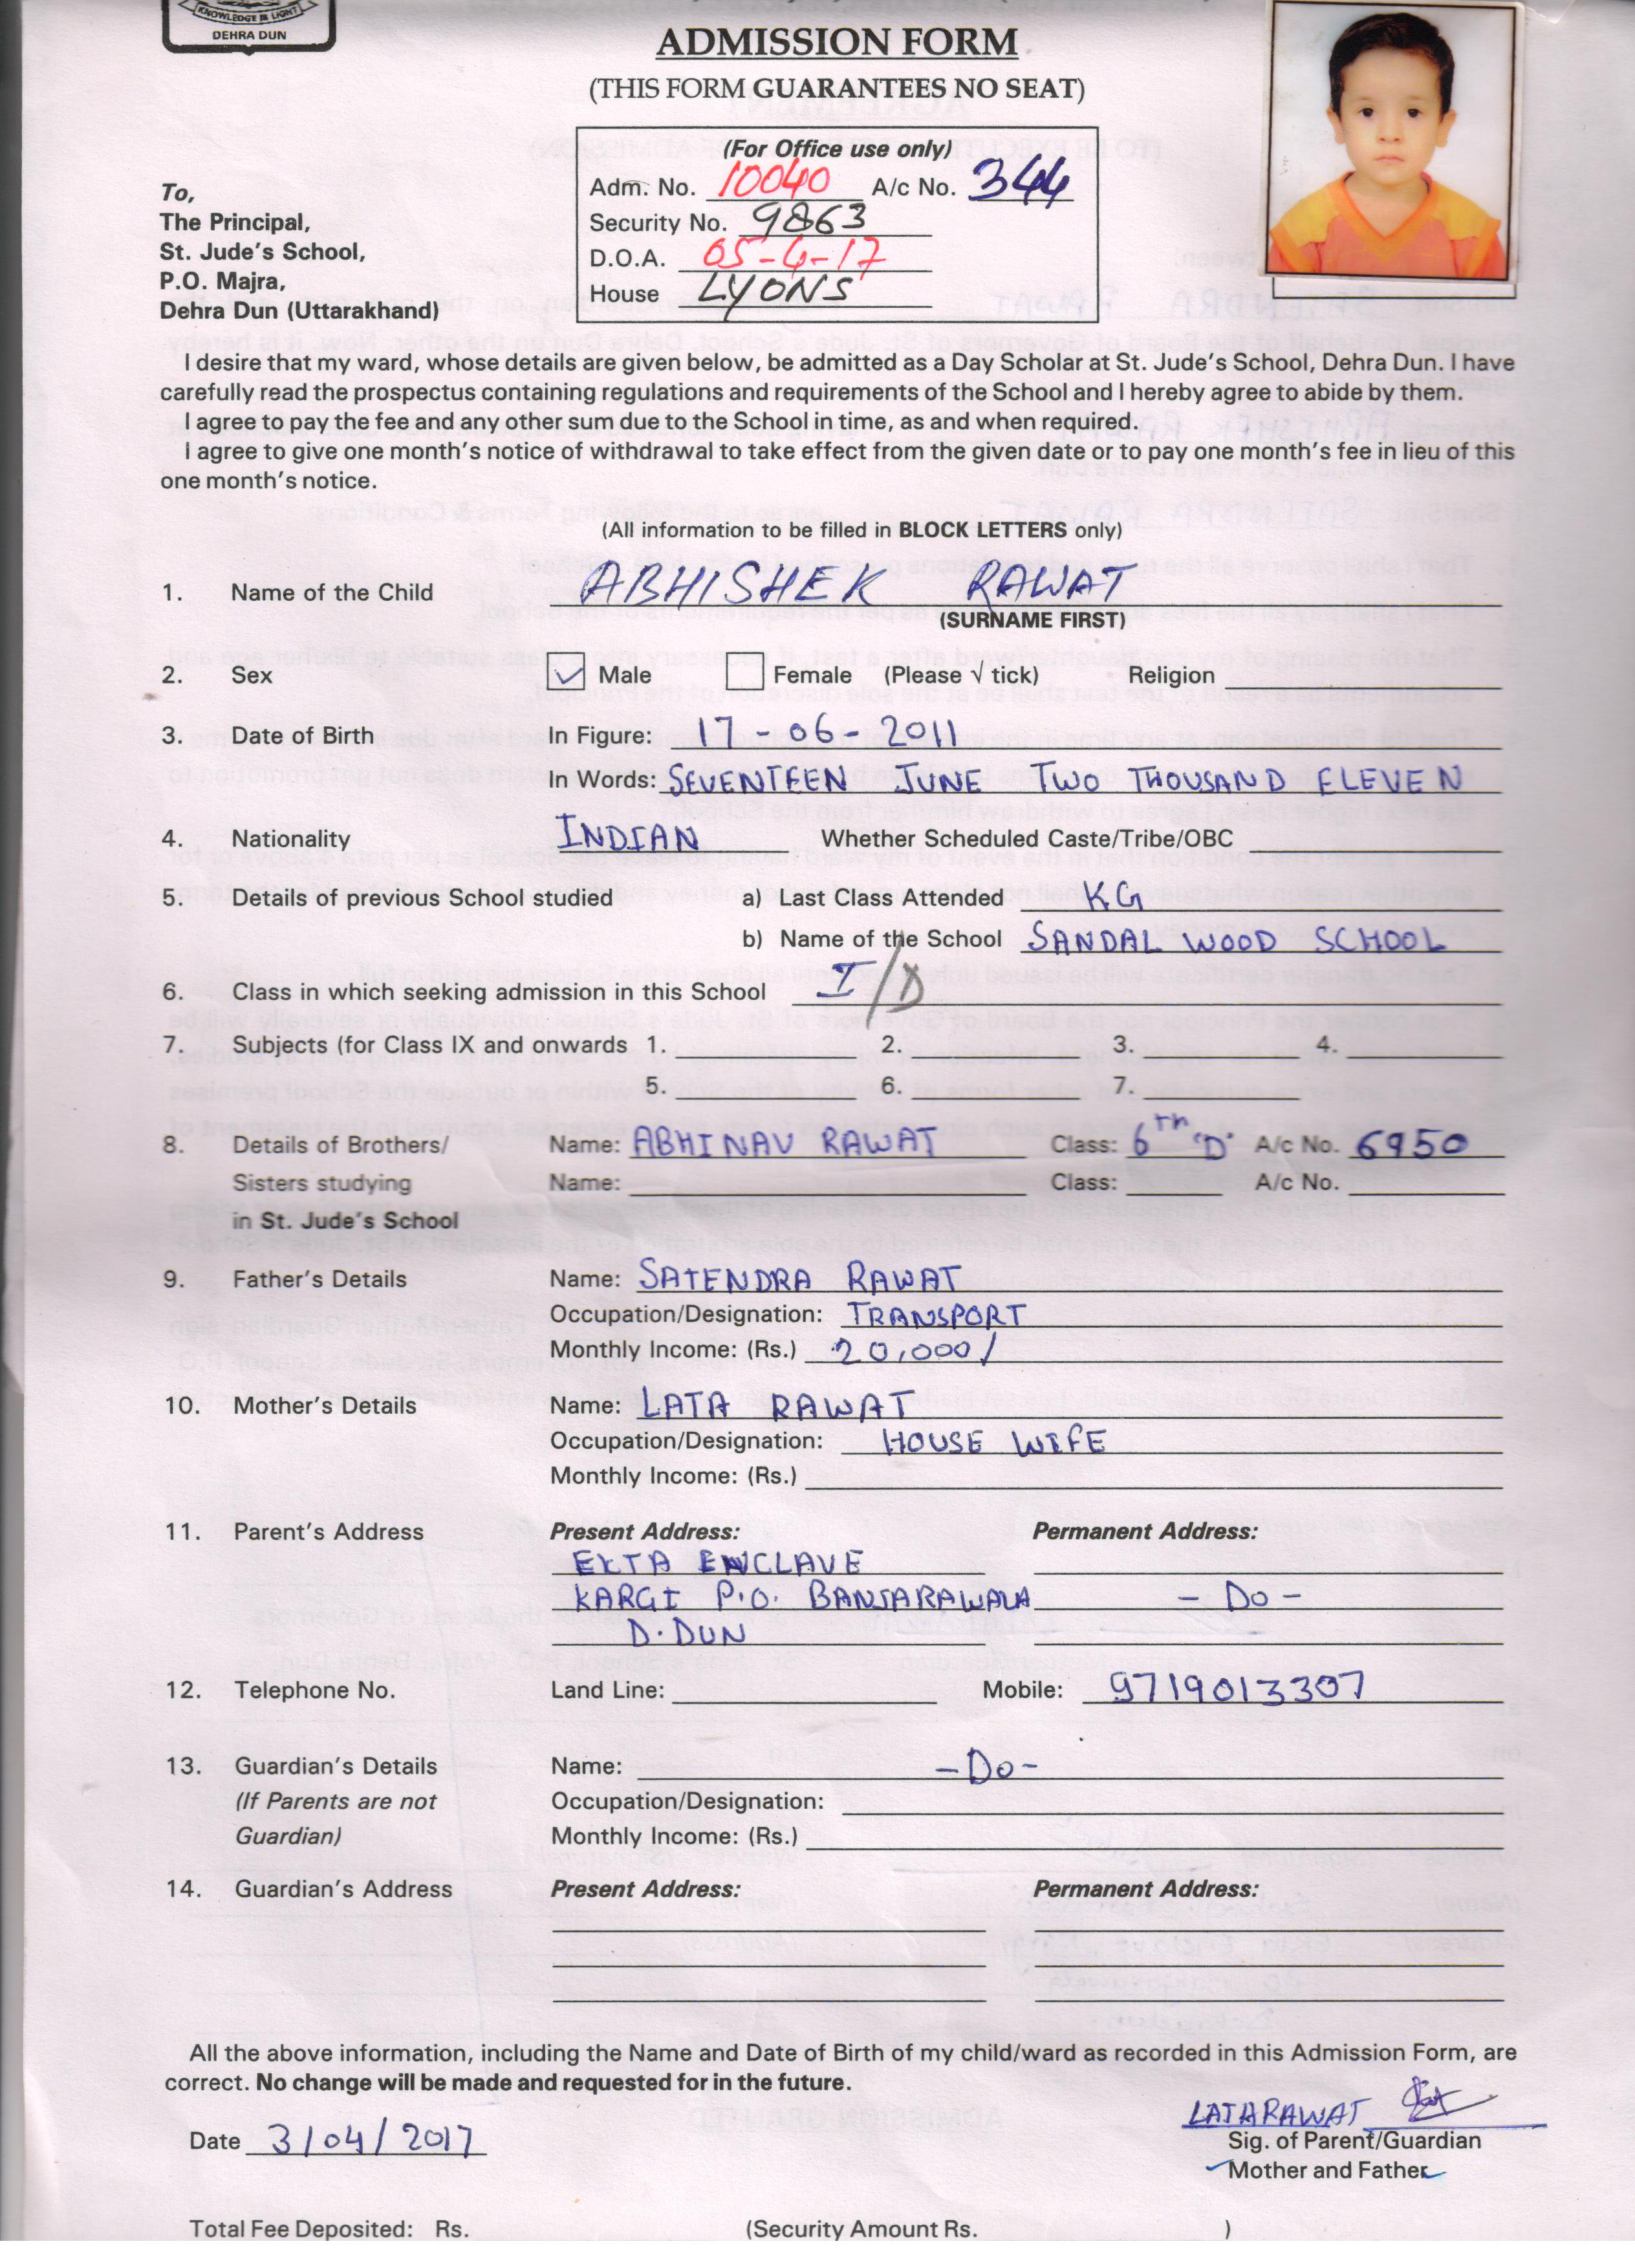 KNOWLEDGE IS LIGHT
DEHRA DUN
ADMISSION FORM
(THIS FORM GUARANTEES NO SEAT)
(For Office use only)
Adm. No. 10040 A/c No. 344
Security No. 9863
D.O.A. 05-4-17
House LYONS
To,
The Principal,
St. Jude's School,
P.O. Majra,
Dehra Dun (Uttarakhand)
I desire that my ward, whose details are given below, be admitted as a Day Scholar at St. Jude's School, Dehra Dun. I have
carefully read the prospectus containing regulations and requirements of the School and I hereby agree to abide by them.
I agree to pay the fee and any other sum due to the School in time, as and when required.
I agree to give one month's notice of withdrawal to take effect from the given date or to pay one month's fee in lieu of this
one month's notice.
(All information to be filled in BLOCK LETTERS only)
1. Name of the Child ABHISHEK RAWAT
(SURNAME FIRST)
2. Sex Male Female (Please √ tick) Religion
3. Date of Birth In Figure: 17-06-2011
In Words: SEVENTEEN JUNE TWO THOUSAND ELEVEN
4. Nationality INDIAN Whether Scheduled Caste/Tribe/OBC
5. Details of previous School studied a) Last Class Attended KG
b) Name of the School SANDAL WOOD SCHOOL
6. Class in which seeking admission in this School I/D
7. Subjects (for Class IX and onwards 1. 2. 3. 4.
5. 6. 7.
8. Details of Brothers/ Name: ABHINAV RAWAT Class: 6th 'D' A/c No. 6950
Sisters studying Name: Class: A/c No.
in St. Jude's School
9. Father's Details Name: SATENDRA RAWAT
Occupation/Designation: TRANSPORT
Monthly Income: (Rs.) 20,000/
10. Mother's Details Name: LATA RAWAT
Occupation/Designation: HOUSE WIFE
Monthly Income: (Rs.)
11. Parent's Address Present Address: Permanent Address:
EKTA ENCLAVE
KARGI P.O. BANJARAWALA - Do -
D.DUN
12. Telephone No. Land Line: Mobile: 9719013307
13. Guardian's Details Name: -Do-
(If Parents are not Occupation/Designation:
Guardian) Monthly Income: (Rs.)
14. Guardian's Address Present Address: Permanent Address:
All the above information, including the Name and Date of Birth of my child/ward as recorded in this Admission Form, are
correct. No change will be made and requested for in the future.
LATA RAWAT
Date 3/04/2017 Sig. of Parent/Guardian
Mother and Father
Total Fee Deposited: Rs. (Security Amount Rs. )